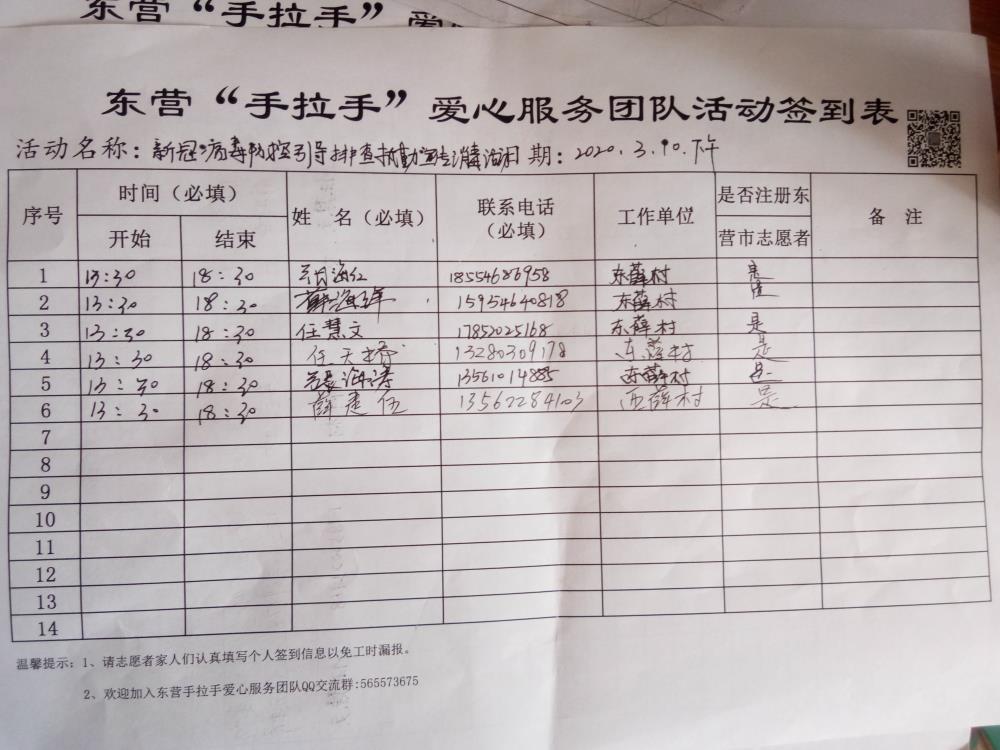 东营“手拉手”爱心
东营“手拉手”爱心服务团队活动签到表
活动名称：新冠病毒防控引导排查执勤宣传消毒 日期：2020.3.10.下午
序号 时间（必填） 姓 名（必填） 联系电话（必填） 工作单位 是否注册东营市志愿者 备 注
开始 结束
1 13:30 18:30 海红 18554686958 东薛村 是
2 13:30 18:30 薛海 15954640818 东薛村 是
3 13:30 18:30 任慧文 17852025168 东薛村 是
4 13:30 18:30 任天 13280309178 东薛村 是
5 13:30 18:30 海涛 13561014885 东薛村 是
6 13:30 18:30 薛建伍 13562284103 西薛村 是
7
8
9
10
11
12
13
14
温馨提示：1、请志愿者家人们认真填写个人签到信息以免工时漏报。
2、欢迎加入东营手拉手爱心服务团队QQ交流群:565573675